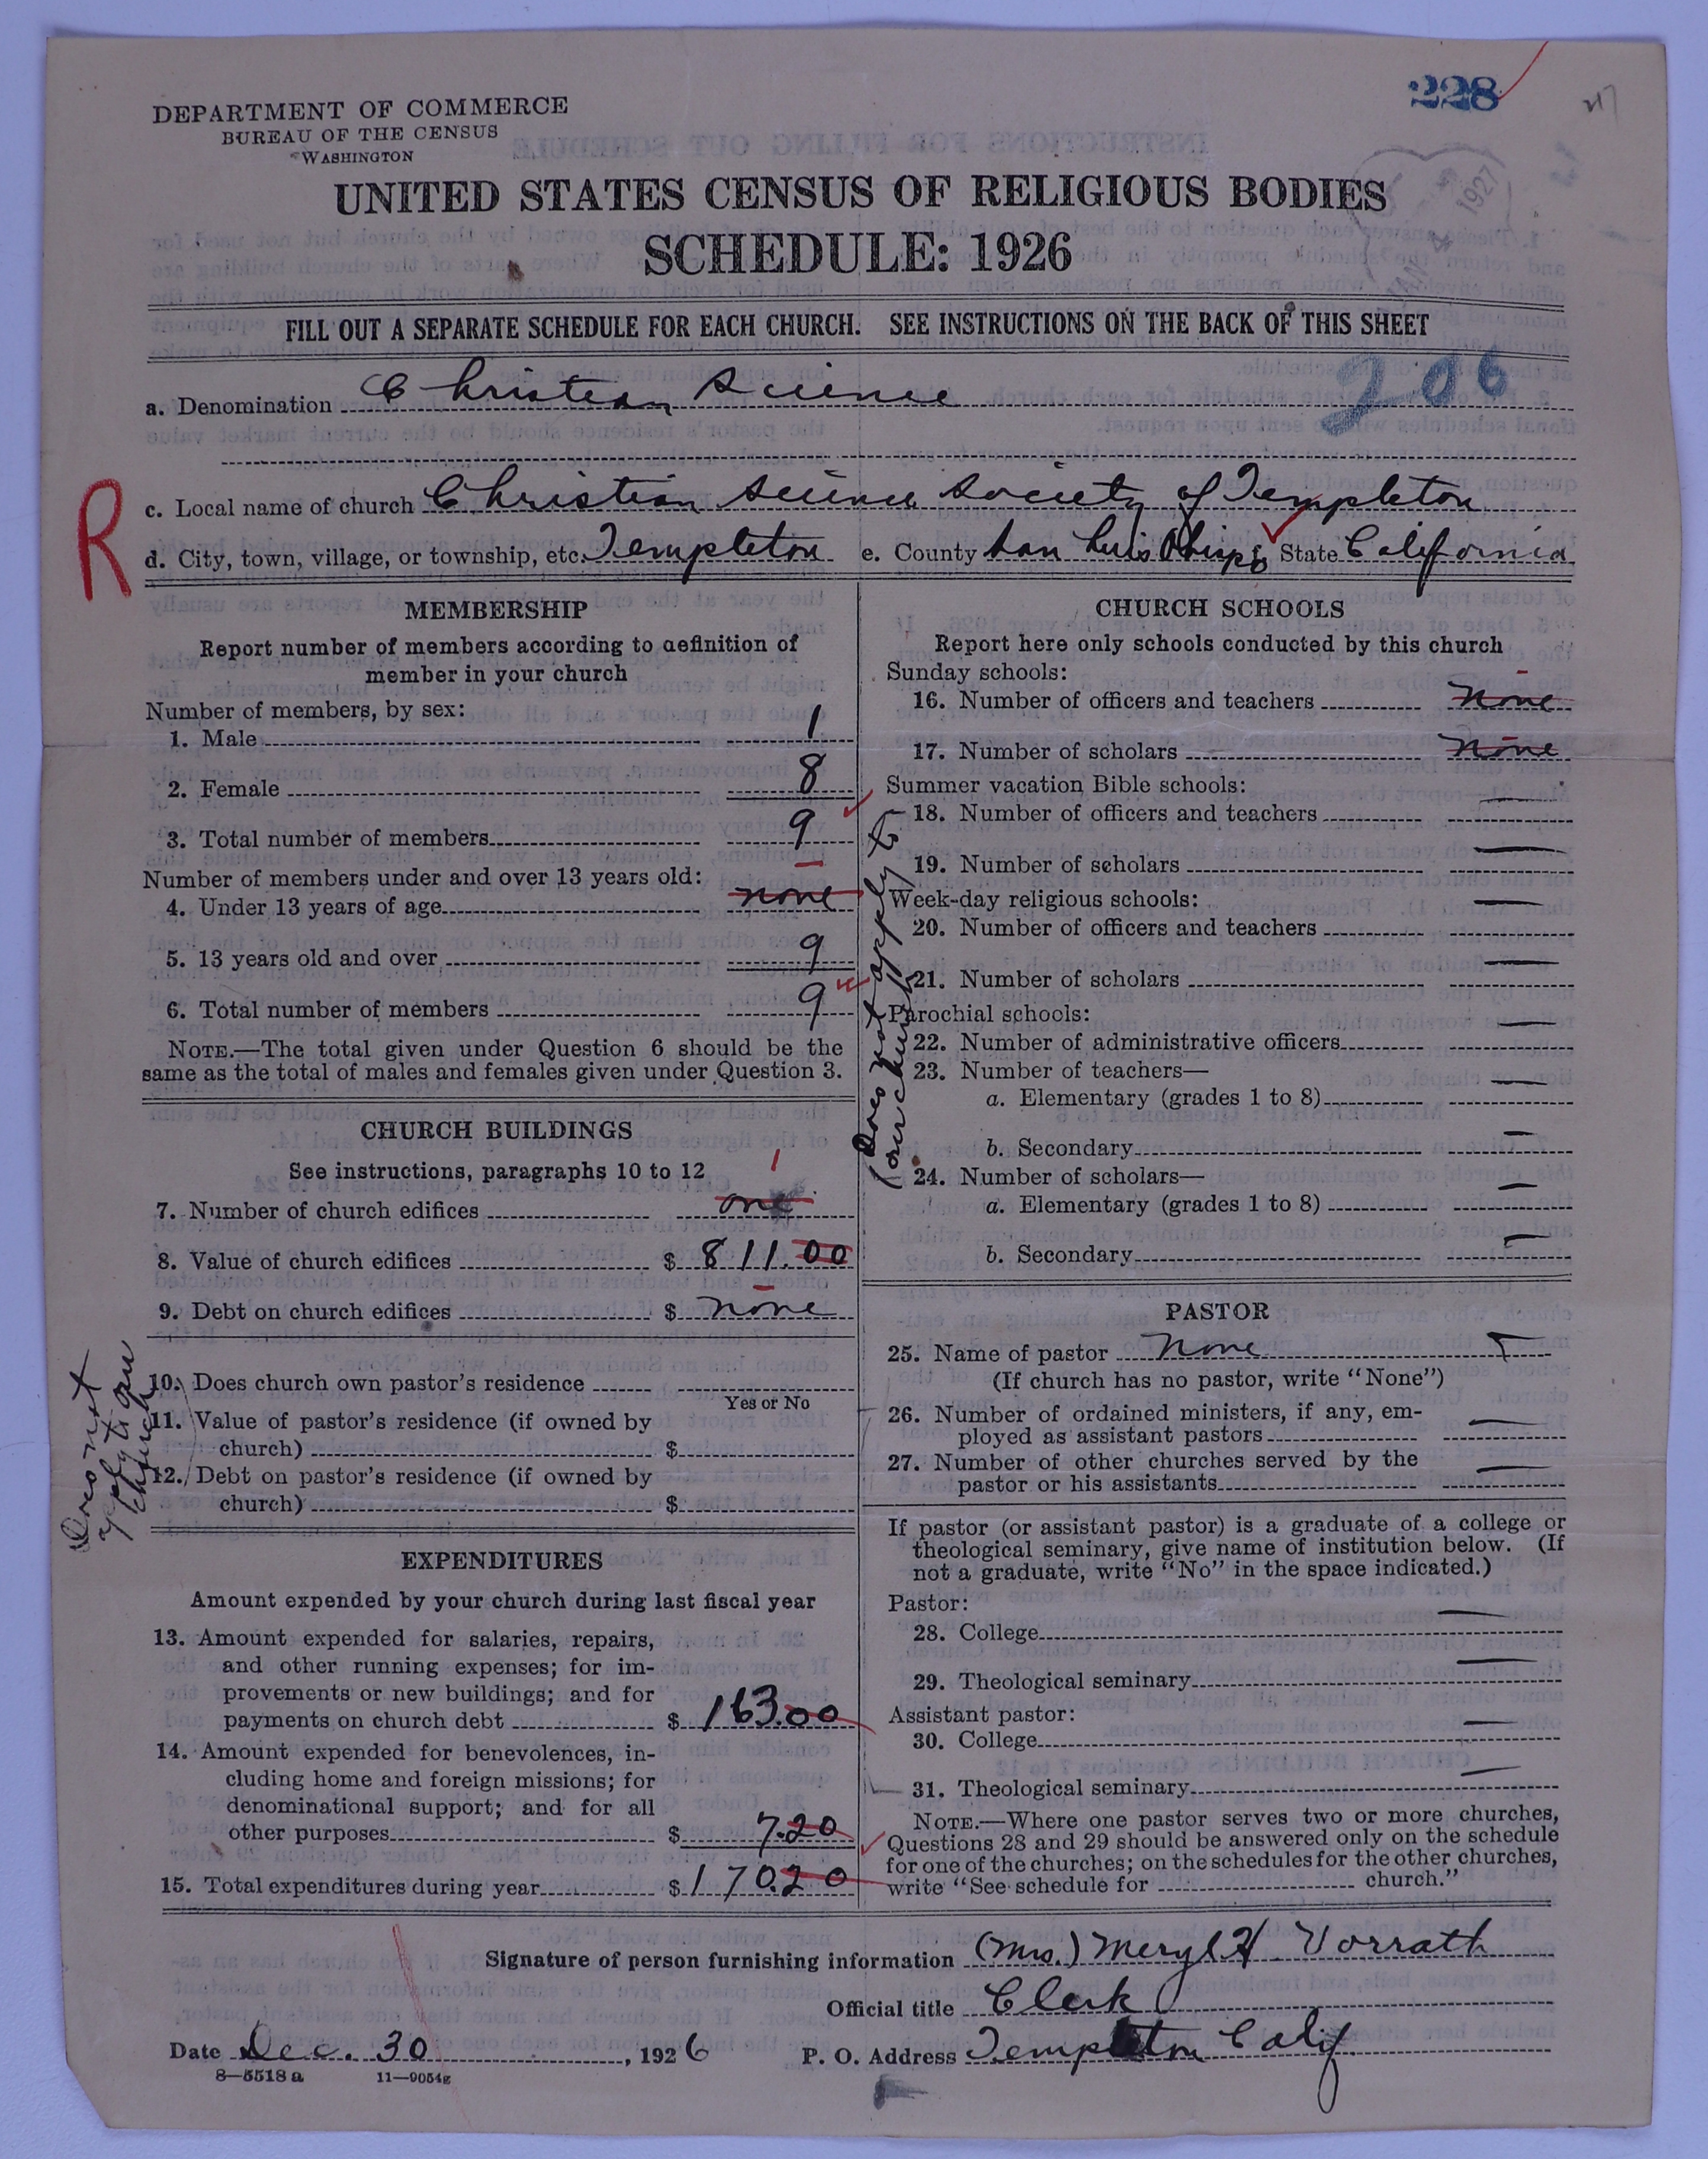 228
DEPARTMENT OF COMMERCE
BUREAU OF THE CENSUS
WASHINGTON
UNITED STATES CENSUS OF RELIGIOUS BODIES
SCHEDULE: 1926
FILL OUT A SEPARATE SCHEDULE FOR EACH CHURCH. SEE INSTRUCTIONS ON THE BACK OF THIS SHEET
206
a. Denomination Christian Science
R
c. Local name of church Christian Science Society of Templeton
d. City, town, village, or township, etc. Templeton e. County San Luis Obispo State California
MEMBERSHIP
Report number of members according to definition of
member in your church
Number of members, by sex:
1. Male 1
2. Female 8
3. Total number of members 9
Number of members under and over 13 years old:
4. Under 13 years of age none
5. 13 years old and over 9
6. Total number of members 9
NOTE.—The total given under Question 6 should be the
same as the total of males and females given under Question 3.
CHURCH BUILDINGS
See instructions, paragraphs 10 to 12
1
7. Number of church edifices one
8. Value of church edifices $ 811.00
9. Debt on church edifices $ none
Does not
apply to our
church
10. Does church own pastor's residence
Yes or No
11. Value of pastor's residence (if owned by
church) $
12. Debt on pastor's residence (if owned by
church) $
EXPENDITURES
Amount expended by your church during last fiscal year
13. Amount expended for salaries, repairs,
and other running expenses; for im-
provements or new buildings; and for
payments on church debt $ 163.00
14. Amount expended for benevolences, in-
cluding home and foreign missions; for
denominational support; and for all
other purposes $ 7.20
15. Total expenditures during year $ 170.20
CHURCH SCHOOLS
Report here only schools conducted by this church
Sunday schools:
16. Number of officers and teachers none
17. Number of scholars none
Does not apply to
our church
Summer vacation Bible schools:
18. Number of officers and teachers —
19. Number of scholars —
Week-day religious schools:
20. Number of officers and teachers —
21. Number of scholars —
Parochial schools:
22. Number of administrative officers —
23. Number of teachers—
a. Elementary (grades 1 to 8) —
b. Secondary —
24. Number of scholars—
a. Elementary (grades 1 to 8) —
b. Secondary —
PASTOR
25. Name of pastor None
(If church has no pastor, write "None")
26. Number of ordained ministers, if any, em-
ployed as assistant pastors —
27. Number of other churches served by the
pastor or his assistants —
If pastor (or assistant pastor) is a graduate of a college or
theological seminary, give name of institution below. (If
not a graduate, write "No" in the space indicated.)
Pastor:
28. College —
29. Theological seminary —
Assistant pastor:
30. College —
31. Theological seminary —
NOTE.—Where one pastor serves two or more churches,
Questions 28 and 29 should be answered only on the schedule
for one of the churches; on the schedules for the other churches,
write "See schedule for church."
Signature of person furnishing information (Mrs.) Meryl H. Vorrath
Official title Clerk
Date Dec. 30, 1926 P. O. Address Templeton Calif.
8—5518a 11—9054g